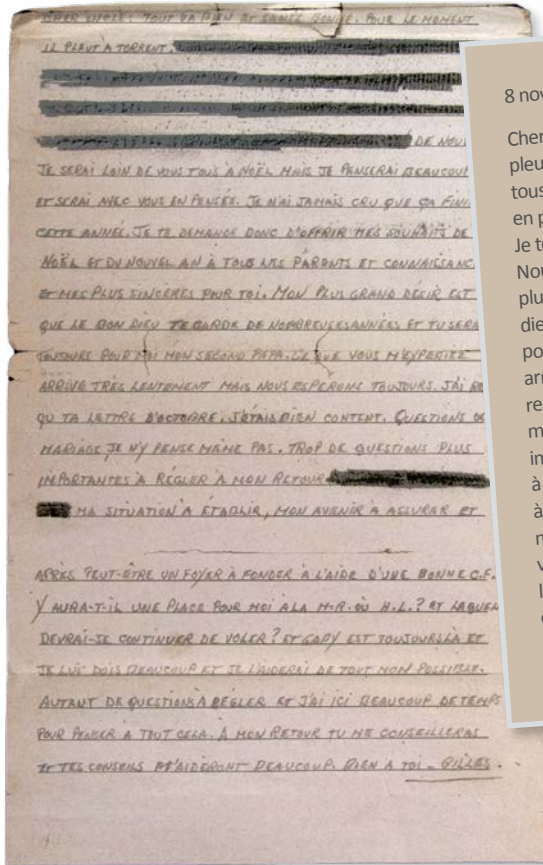 CHER ONCLE: TOUT VA BIEN ET SANTÉ BONNE. POUR LE MOMENT
IL PLEUT A TORRENT.
DE NOU
JE SERAI LOIN DE VOUS TOUS A NOËL MAIS JE PENSERAI BEAUCOUP
ET SERAI AVEC VOUS EN PENSÉE. JE N'AI JAMAIS CRU QUE ÇA FINI
CETTE ANNÉE. JE TE DEMANDE DONC D'OFFRIR MES SOUHAITS DE
NOËL ET DU NOUVEL AN À TOUS LES PARENTS ET CONNAISSANC
ET MES PLUS SINCÈRES POUR TOI. MON PLUS GRAND DÉSIR EST
QUE LE BON DIEU TE GARDE DE NOMBREUSES ANNÉES ET TU SERA
TOUJOURS POUR MOI MON SECOND PAPA. CE QUE VOUS M'EXPEDIEZ
ARRIVE TRÈS LENTEMENT MAIS NOUS ESPERONS TOUJOURS. J'AI RE
QU TA LETTRE D'OCTOBRE, J'ÉTAIS BIEN CONTENT. QUESTIONS DE
MARIAGE JE N'Y PENSE MÊME PAS. TROP DE QUESTIONS PLUS
IMPORTANTES À RÉGLER À MON RETOUR
MA SITUATION À ÉTABLIR, MON AVENIR À ASSURER ET
APRÈS PEUT-ÊTRE UN FOYER À FONDER À L'AIDE D'UNE BONNE C.F.
Y AURA-T-IL UNE PLACE POUR MOI A LA M-R. OÙ H.L.? ET LAQUEL
DEVRAI-JE CONTINUER DE VOLER? ET GABY EST TOUJOURS LÀ ET
JE LUI DOIS BEAUCOUP ET JE L'AIDERAI DE TOUT MON POSSIBLE.
AUTANT DE QUESTIONS À RÉGLER ET J'AI ICI BEAUCOUP DE TEMPS
POUR PENSER A TOUT CELA. À MON RETOUR TU ME CONSEILLERAS
ET TES CONSEILS M'AIDERONT BEAUCOUP. BIEN A TOI - GILLES.
8 nov
Cher
pleu
tous
en p
Je t
Nou
plu
die
po
arr
re
m
in
à
à
n
v
l